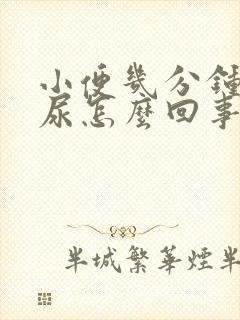 小便幾分鐘
尿怎麼回事
半城繁華煙半